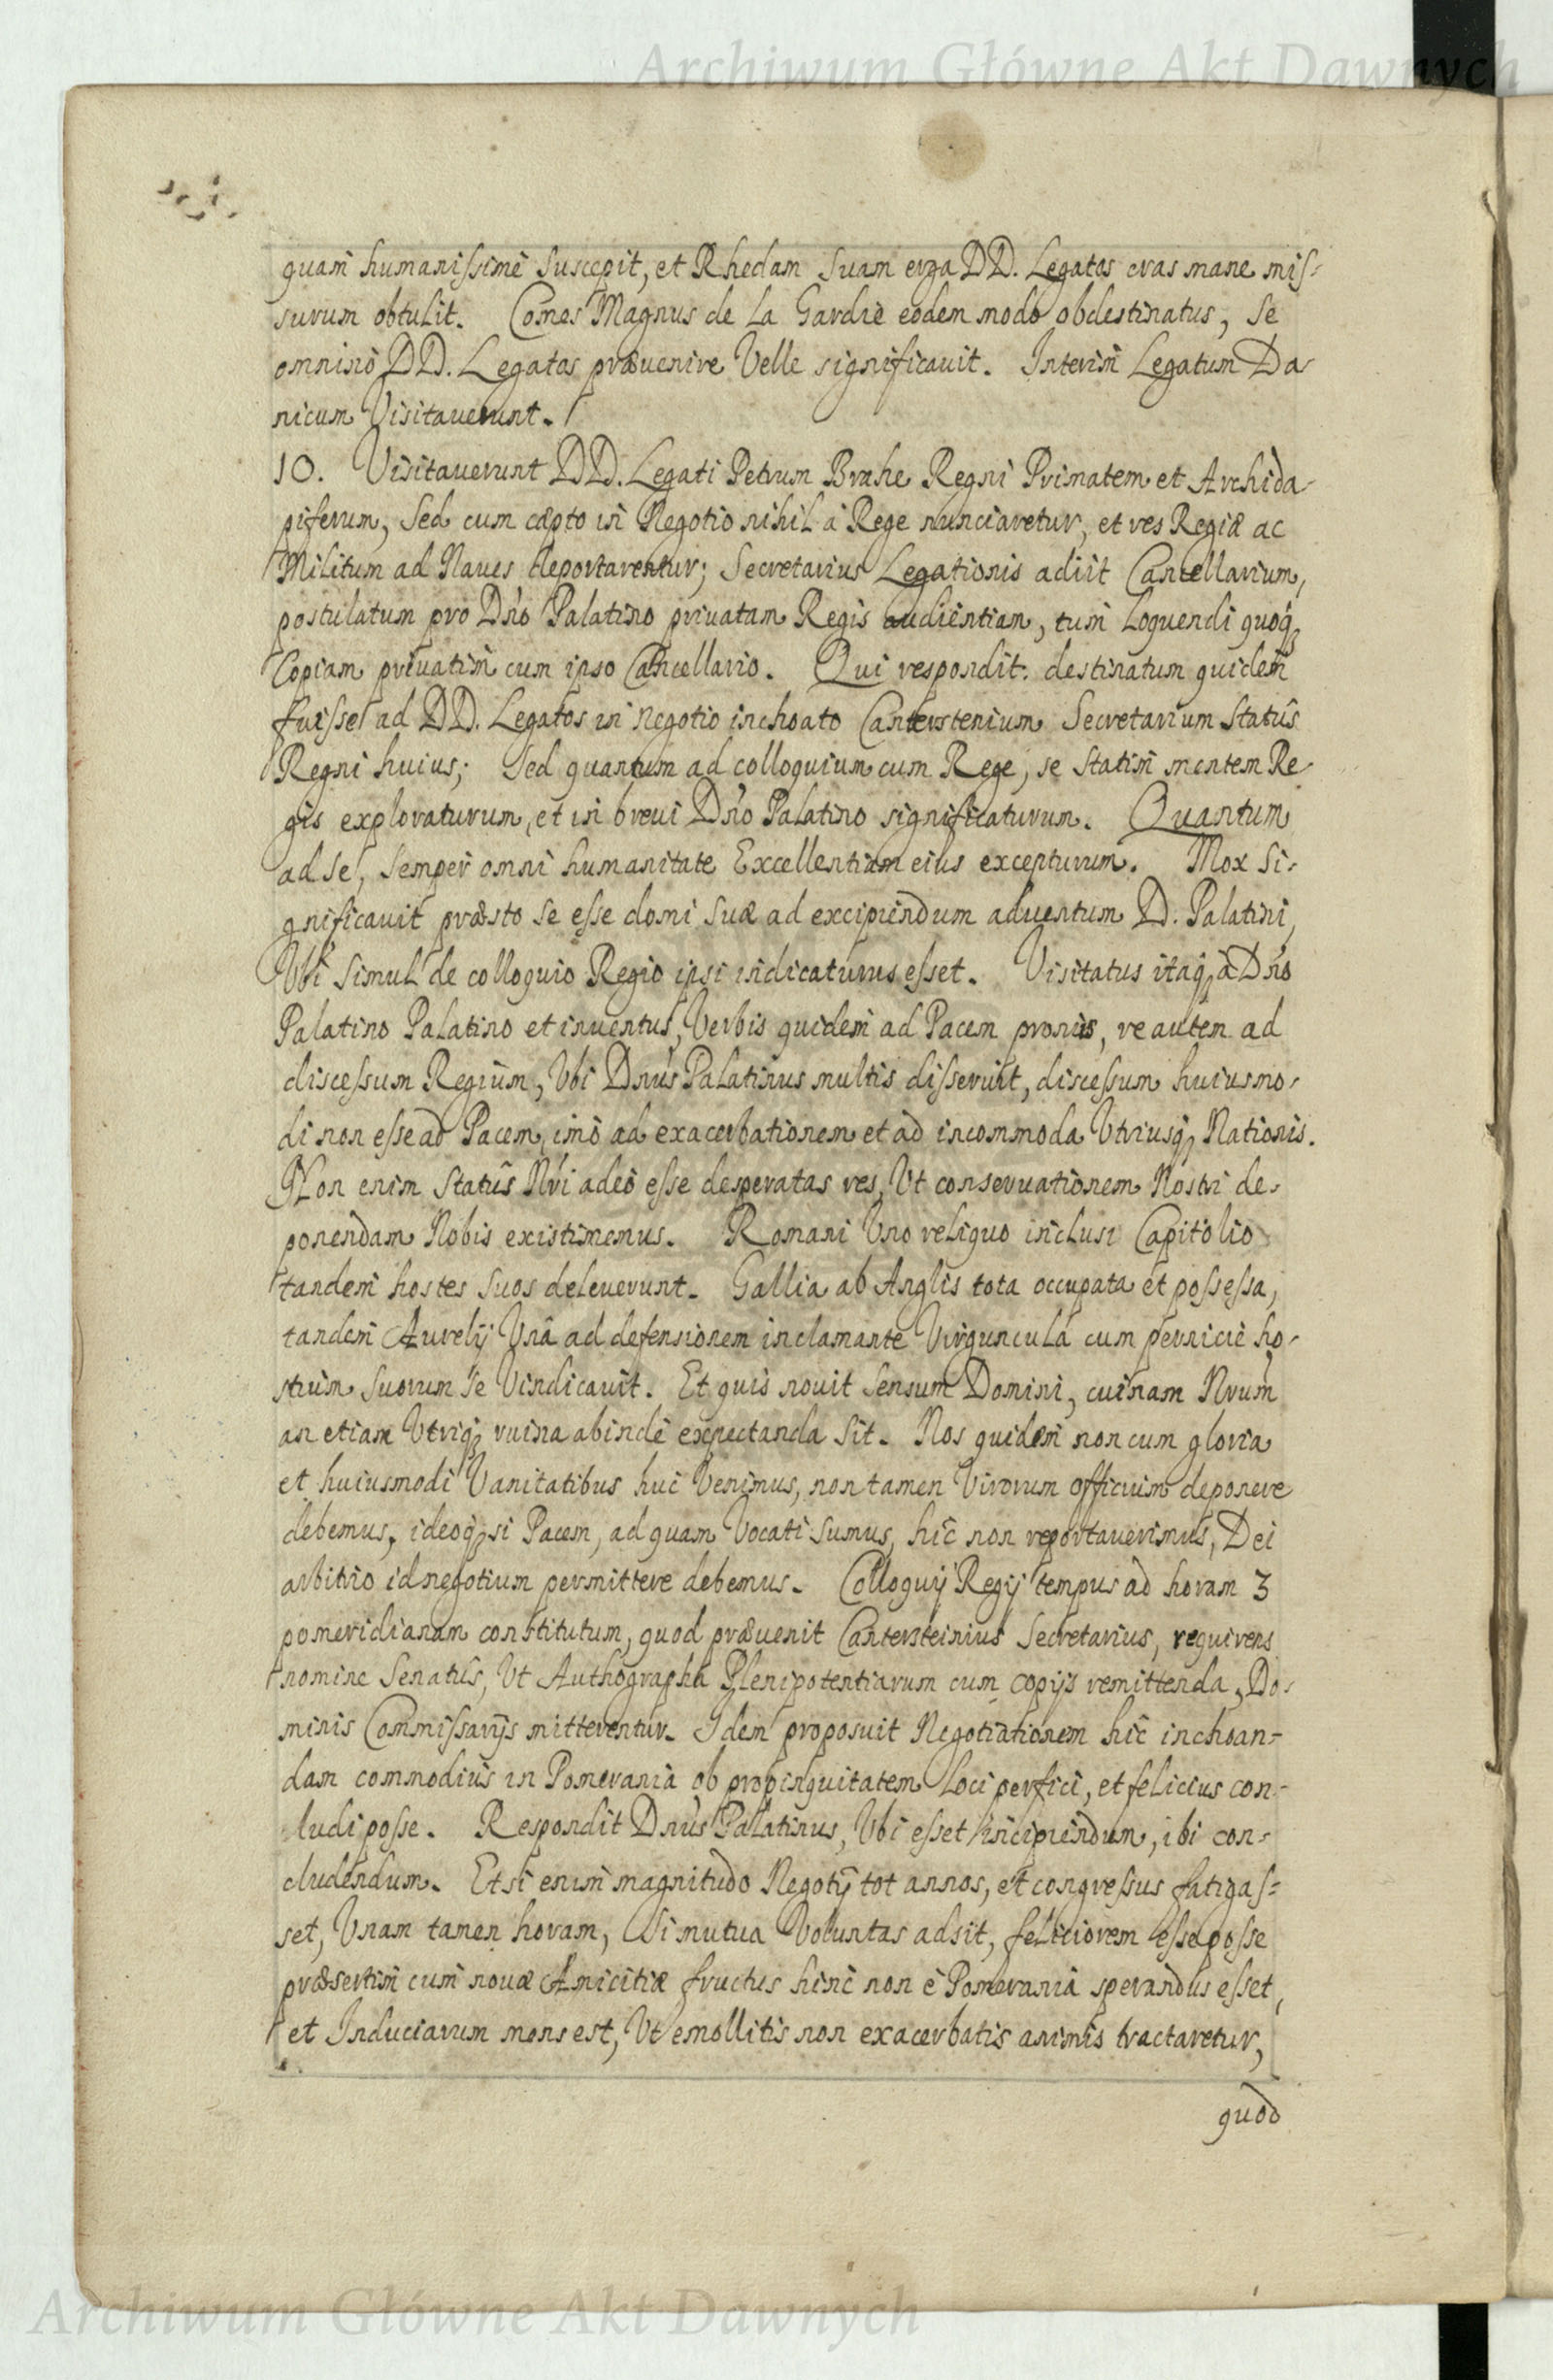 Archiwum Główne Akt Dawnych
quam humanissimè suscepit, et Rhedam suam erga DD. Legatos cras mane mis-
surum obtulit. Comes Magnus de La Gardie eodem modo obdestinatus, se
omninò DD. Legatos præuenire Velle significauit. Interim Legatum Da-
nicum Visitauerunt.
10. Visitauerunt DD. Legati Petrum Brahe Regni Primatem et Archida-
piferum, Sed cum cæpto in Negotio nihil à Rege nunciaretur, et res Regiæ ac
Militum ad Naues deportarentur; Secretarius Legationis adiit Cancellarium,
postulatum pro Dño Palatino priuatam Regis audientiam, tum Loquendi quoq3
Copiam priuatim cum ipso Cancellario. Qui respondit: destinatum quidem
fuisse ad DD. Legatos in negotio inchoato Canterstenium Secretarium Statûs
Regni huius; Sed quantum ad colloquium cum Rege, se statim mentem Re-
gis exploraturum, et in breui Dño Palatino significaturum. Quantum
ad se, semper omni humanitate Excellentiam eius excepturum. Mox si-
gnificauit præsto se esse domi suæ ad excipiendum aduentum D. Palatini,
Vbi simul de colloquio Regio ipsi indicaturus esset. Visitatus itaq3 à Dño
Palatino Palatino et inuentus, Verbis quidem ad Pacem pronus, re autem ad
discessum Regium, Vbi Dnus Palatinus multis disseruit, discessum huiusmo-
di non esse ad Pacem, imò ad exacerbationem et ad incommoda Vtriusq3 Nationis.
Non enim Statûs Nri adeò esse desperatas res, Vt conseruationem Nostri de-
ponendam Nobis existimemus. Romani Vno reliquo inclusi Capitolio
tandem hostes suos deleuerunt. Gallia ab Anglis tota occupata et possessa,
tandem Aurelÿ Vnâ ad defensionem inclamante Virgunculâ cum pernicie ho-
stium suorum se Vindicauit. Et quis nouit sensum Domini, cuinam Nrum
an etiam Vtriq3 ruina abinde expectanda sit. Nos quidem non cum gloria
et huiusmodi Vanitatibus huc Venimus, non tamen Virorum officium deponere
debemus, ideoq3 si Pacem, ad quam Vocati sumus, hîc non reportauerimus, Dei
arbitrio id negotium permittere debemus. Colloquÿ Regÿ tempus ad horam 3
pomeridianam constitutum, quod præuenit Cantersteinius Secretarius, requirens
nomine Senatûs, Vt Authographa Plenipotentiarum cum copÿs remittenda Do-
minis Commissarÿs mitterentur. Idem proposuit Negotiationem hîc inchoan-
dam commodiùs in Pomerania ob propinquitatem Loci perfici, et felicius con-
ludi posse. Respondit Dnus Palatinus, Vbi esset incipiendum, ibi con-
cludendum. Etsi enim magnitudo Negotÿ tot annos, et congressus fatigas-
set, Vnam tamen horam, si mutua Voluntas adsit, feliciorem esse posse
præsertim cum nouæ Amicitiæ fructus hinc non è Pomerania sperandus esset,
et Induciarum mens est, Vt emollitis non exacerbatis animis tractaretur,
quod
Archiwum Główne Akt Dawnych